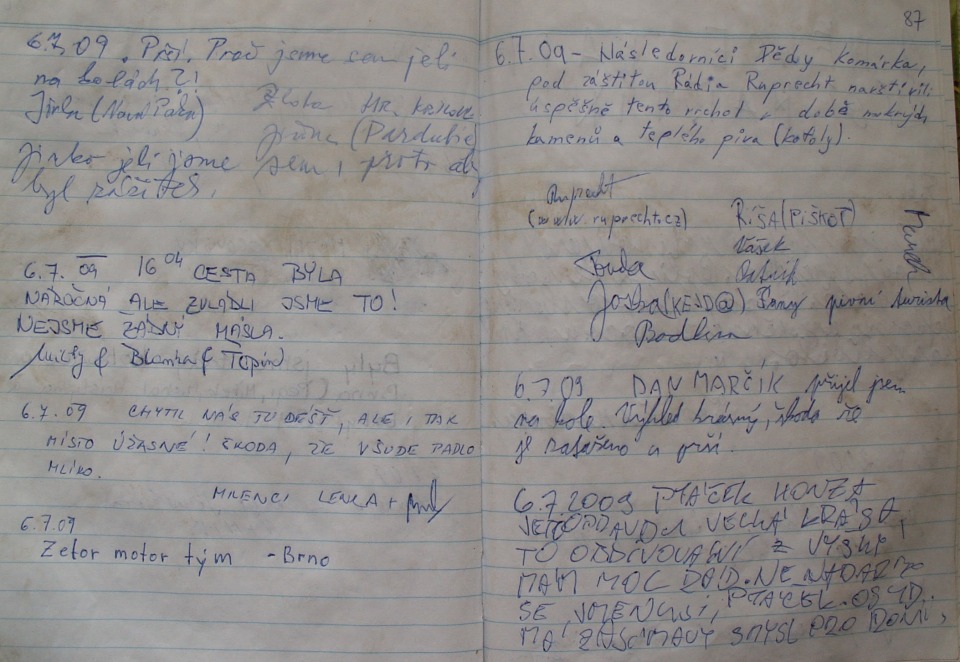 6.7.09. Prší. Proč jsme sem jeli
na kolách?!
Jirka (Nová Paka)
Jirko jeli jsme sem, proto aby
byl zážitek.
HR. KRÁLOVÉ
(Pardubice)
6.7. 09 16 04 CESTA BYLA
NÁROČNÁ ALE ZVLÁDLI JSME TO!
NEJSME ŽÁDNÝ MÁSLA.
& Blanka & Topin
6.7.09 CHYTIL NÁS TU DÉŠŤ, ALE I TAK
MÍSTO ÚŽASNÉ! ŠKODA, ŽE VŠUDE PADLO
MLÍKO.
MILENCI LENKA +
6.7.09
Zetor motor tým - Brno
87
6.7.09 - Následovníci Dědy Komárka,
pod záštitou Rádia Ruprecht navštívili
úspěšně tento vrchol v době mokrých
kamenů a teplého piva (kofoly).
Ruprecht
(www.ruprecht.cz)
RÍŠA (PIŠKOT)
Vášek
Patrik
Jouda
Joska (KEJD@) pivní turista
Bodlina
6.7.09 DAN MARČÍK přijel jsem
na kole. Výhled krásný, škoda že
je zataženo a prší.
6.7.2009 PTÁČEK HONZA
JE TO OPRAVDU VELKÁ KRÁSA,
TO OBDIVOVÁNÍ Z VÝŠKY,
MÁM MOC RÁD. NE NADARMO
SE JMENUJI, PTÁČEK.
MÁ ZAJÍMAVÝ SMYSL PRO